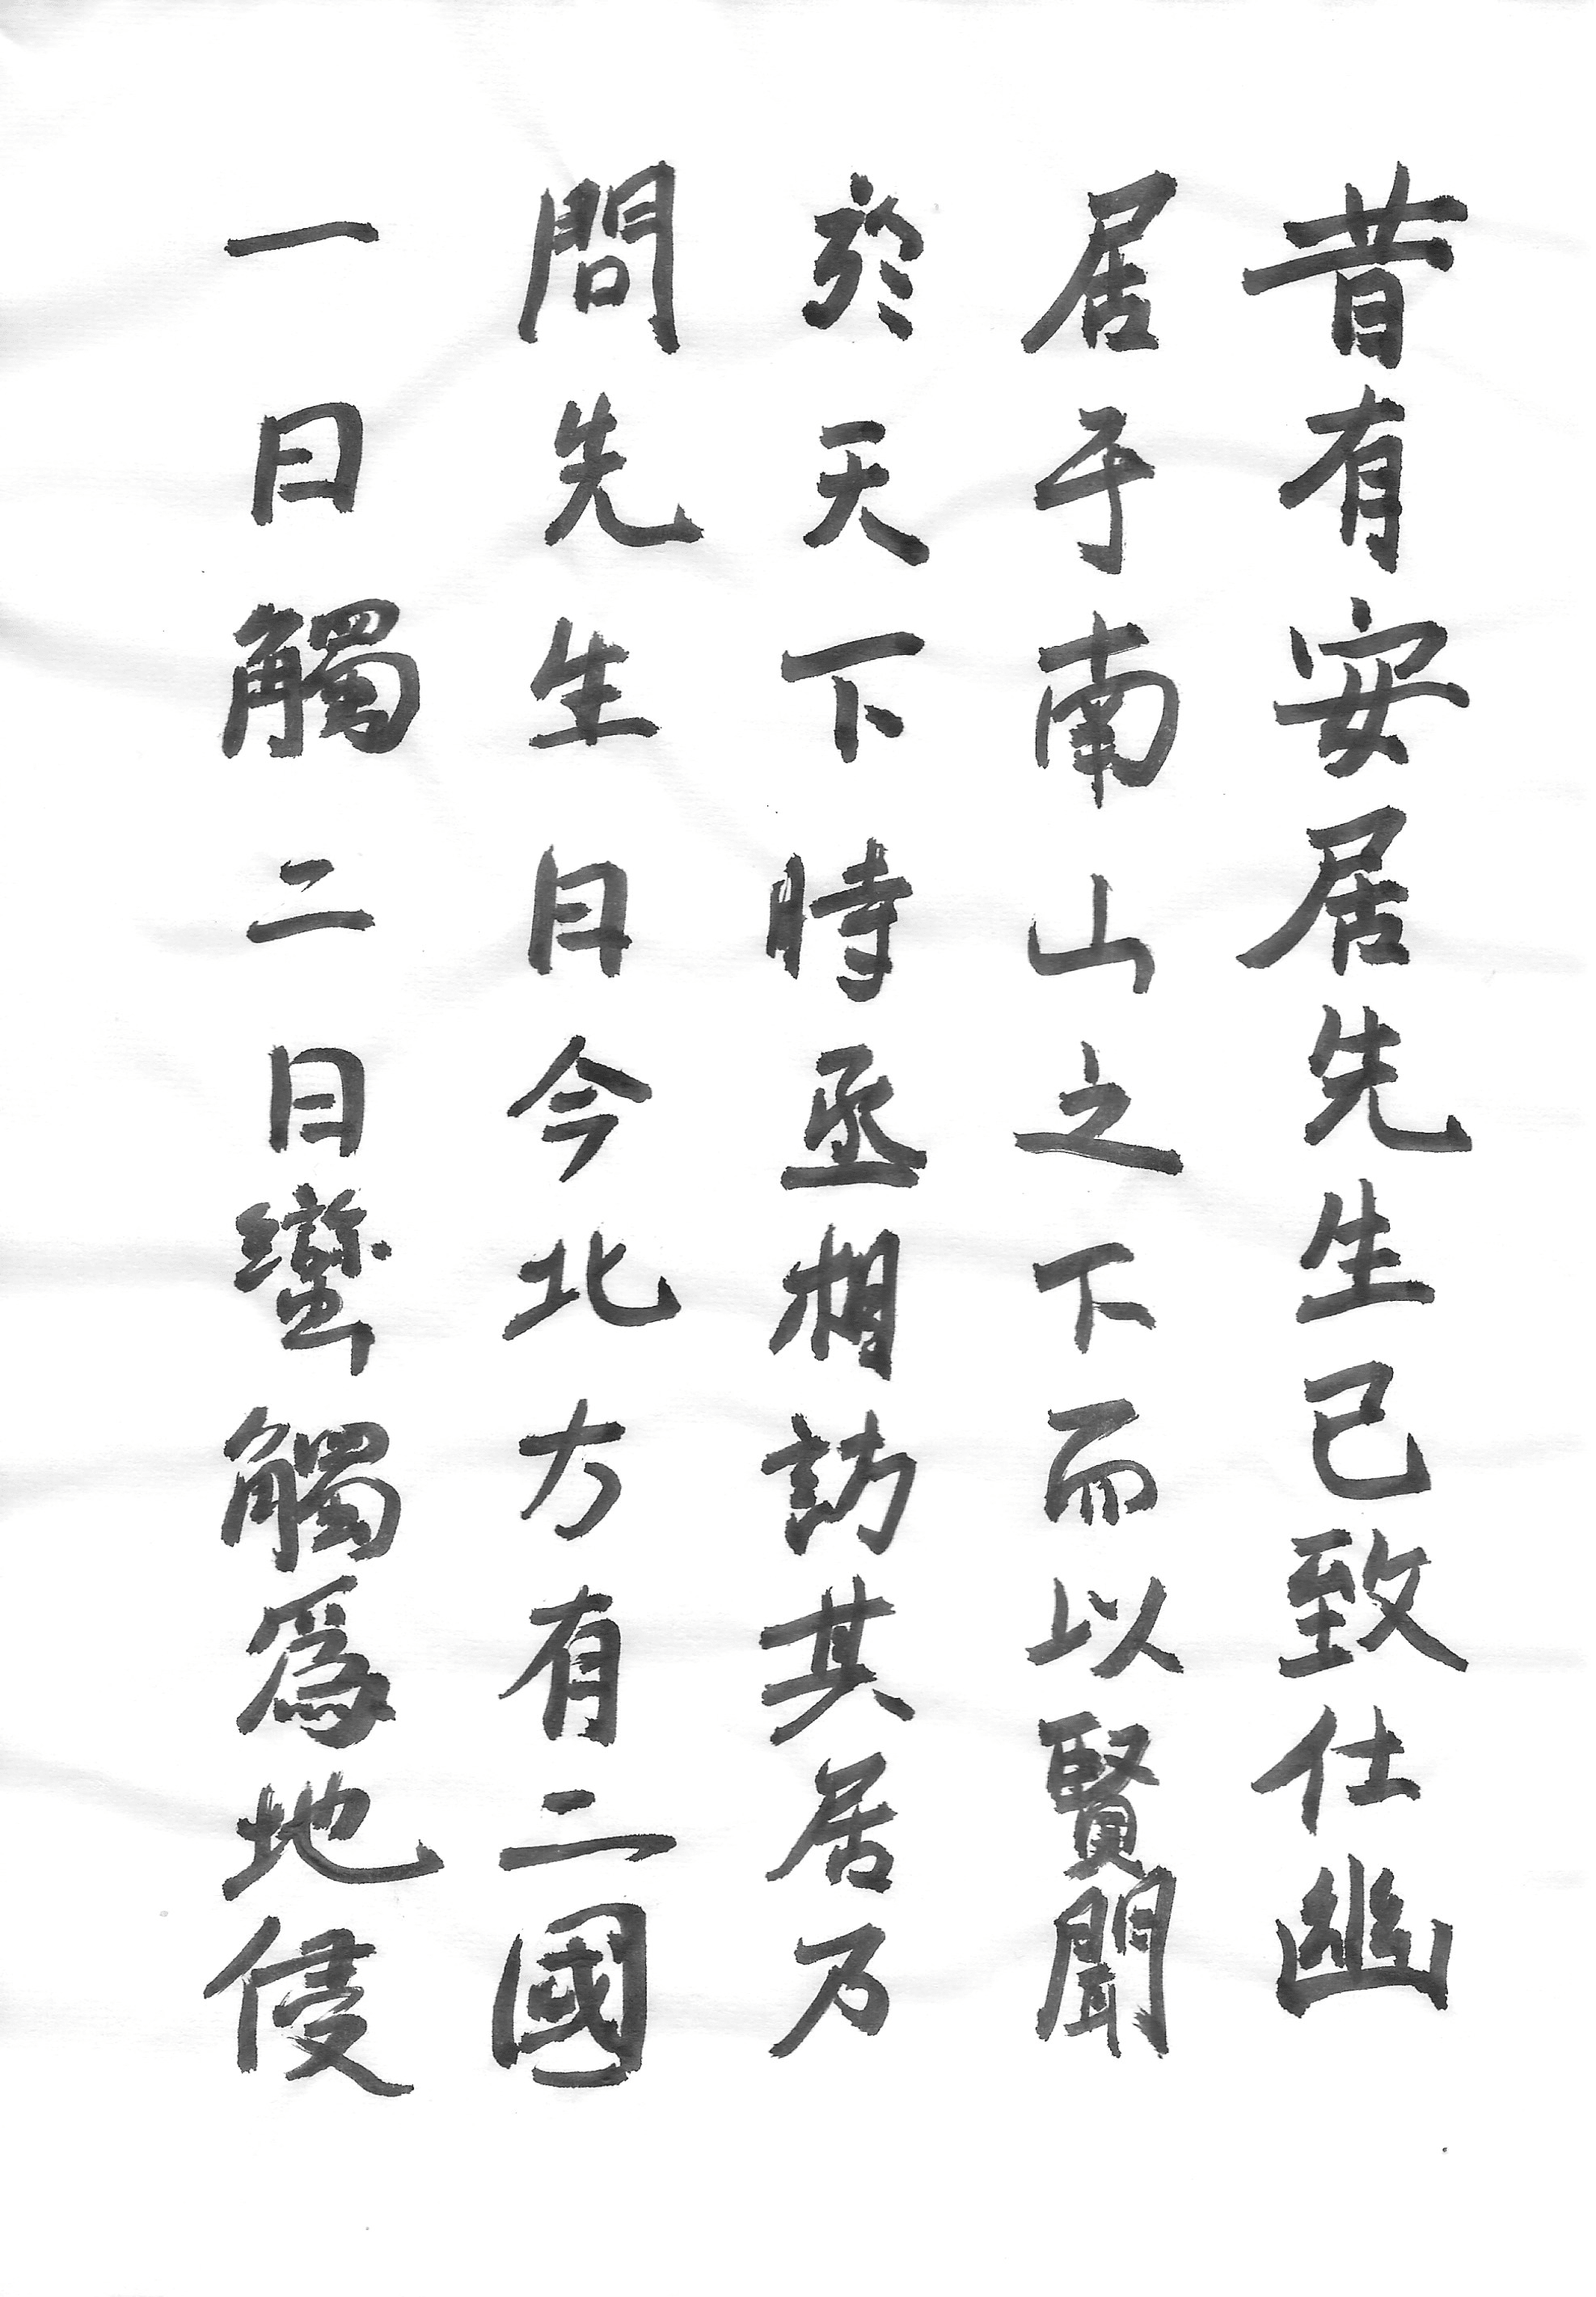 昔有安居先生已致仕幽
居于南山之下而以賢聞
於天下時丞相訪其居乃
問先生曰今北方有二國
一曰觸二曰蠻觸爲地侵